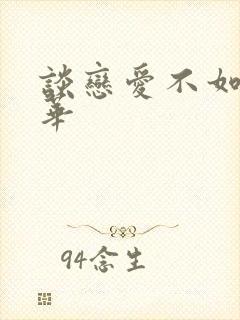 談戀愛不如
華
94念生